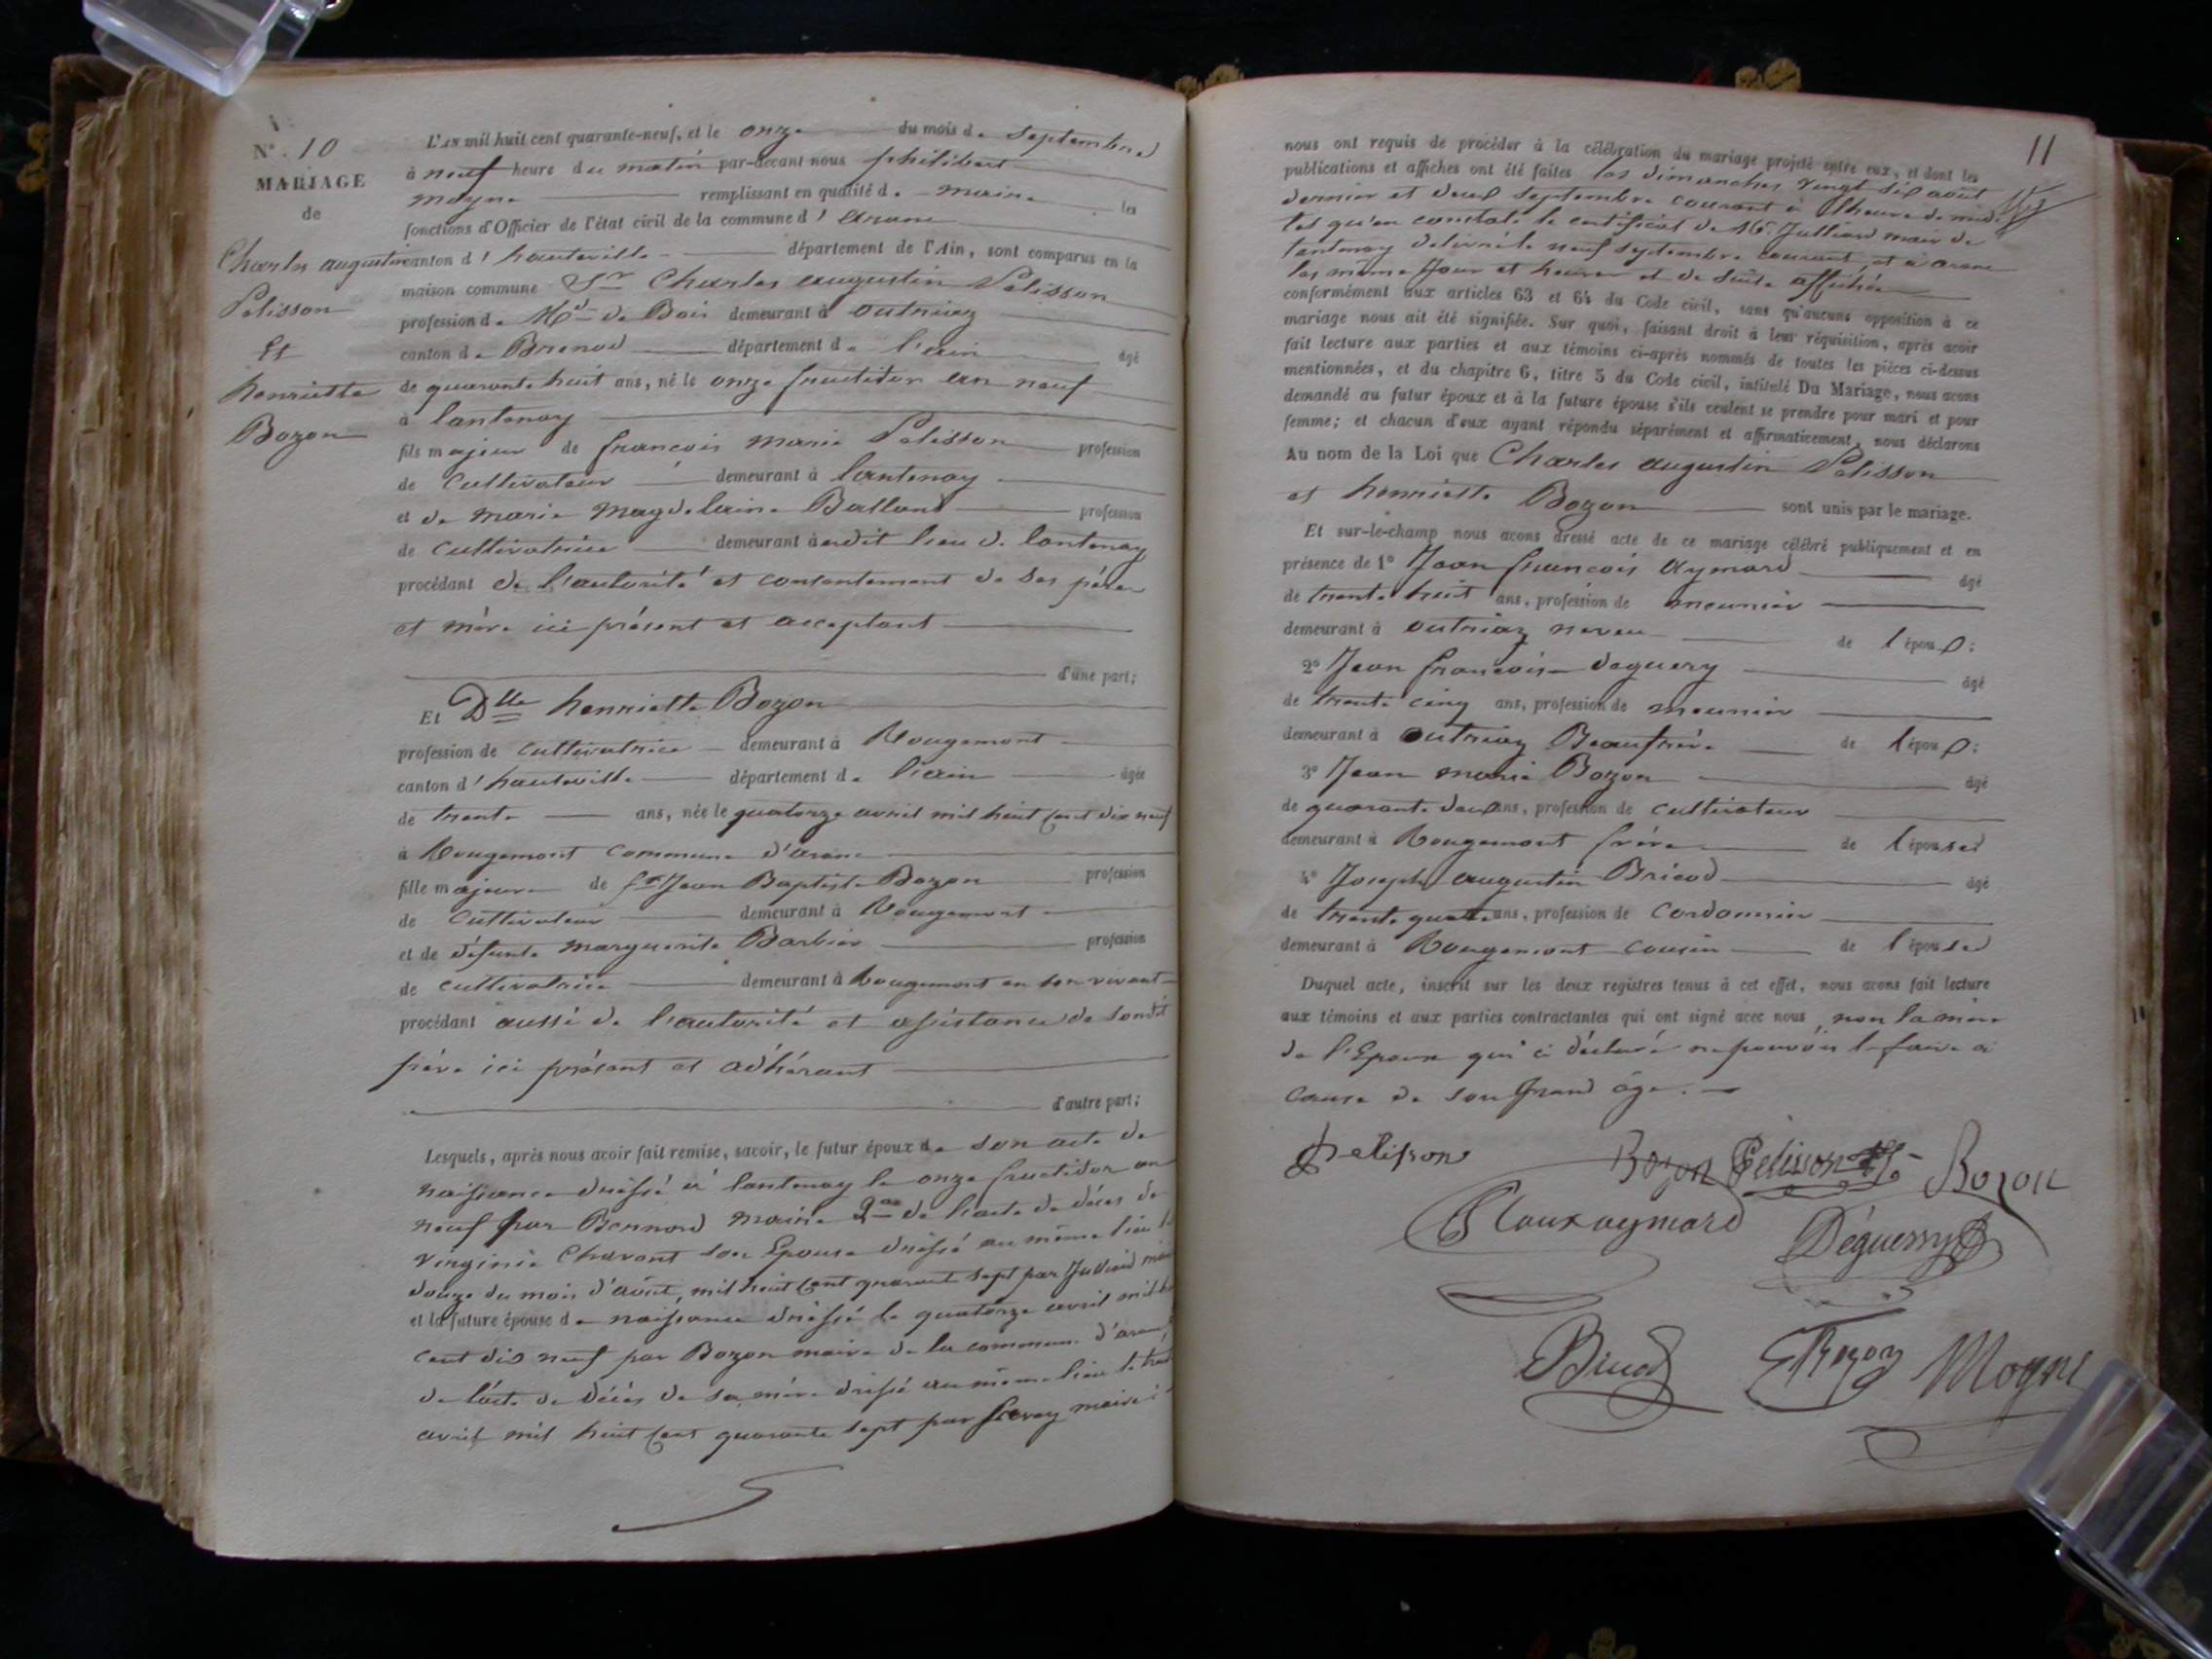 N°. 10
MARIAGE
de
Charles augustin
Pelisson
Et
henriette
Bozon
L'AN mil huit cent quarante-neuf, et le onze du mois de Septembre
à neuf heure du matin par-devant nous philibert
moyne remplissant en qualité de maire les
fonctions d'Officier de l'état civil de la commune d' Aranc
canton d' hauteville département de l'Ain, sont comparus en la
maison commune Sr Charles augustin Pelisson
profession de Md de Bois demeurant à outriaz
canton de Brenod département de l'ain âgé
de quarante huit ans, né le onze fructidor an neuf
à lantenay
fils majeur de francois marie Pelisson profession
de Cultivateur demeurant à lantenay
et de marie magdelaine Balland profession
de Cultivatrice demeurant à udit lieu de lantenay
procédant de l'autorité et consentement de ses père
et mère ici présent et acceptant
d'une part;
Et Dlle henriette Bozon
profession de Cultivatrice demeurant à Rougemont
canton d' hauteville département de l'ain âgée
de trente ans, née le quatorze avril mil huit cent dix neuf
à Rougemont Commune d'aranc
fille majeure de fs Jean Baptiste Bozon profession
de Cultivateur demeurant à Rougemont
et de défunte marguerite Barbier profession
de Cultivatrice demeurant à Rougemont en son vivant
procédant aussi de l'autorité et assistance de sondit
père ici présent et adhérant
d'autre part;
Lesquels, après nous avoir fait remise, savoir, le futur époux de son acte de
naissance dréssé à lantenay le onze fructidor an
neuf par Bernard maire 2° de l'acte de décès de
virginie Chavant son Epouse dréssé au même lieu le
douze du mois d'août, mil huit cent quarante sept par Julliard
et la future épouse de naissance dréssé le quatorze avril mil
cent dix neuf par Bozon maire de la commune d'aranc
de l'acte de décès de sa mère dréssé au même lieu le
avril mil huit cent quarante sept par maire
11
nous ont requis de procéder à la célébration du mariage projeté entre eux, et dont les
publications et affiches ont été faites les dimanches vingt six août
dernier et deux Septembre courant à l'heure de midi
tel qu'en constate le certificat de Mr. Julliard maire de
lantenay délivré le neuf septembre courant, et à aranc
les même Jour et heures et de suite affichée
conformément aux articles 63 et 64 du Code civil, sans qu'aucune opposition à ce
mariage nous ait été signifiée. Sur quoi, faisant droit à leur réquisition, après avoir
fait lecture aux parties et aux témoins ci-après nommés de toutes les pièces ci-dessus
mentionnées, et du chapitre 6, titre 5 du Code civil, intitulé Du Mariage, nous avons
demandé au futur époux et à la future épouse s'ils veulent se prendre pour mari et pour
femme; et chacun d'eux ayant répondu séparément et affirmativement, nous déclarons
Au nom de la Loi que Charles augustin Pelisson
et henriette Bozon sont unis par le mariage.
Et sur-le-champ nous avons dressé acte de ce mariage célébré publiquement et en
présence de 1° Jean francois Aymard âgé
de trente huit ans, profession de meunier
demeurant à outriaz neveu de l'époux;
2° Jean francois deguery âgé
de trente cinq ans, profession de meunier
demeurant à outriaz Beaufrère de l'époux;
3° Jean marie Bozon âgé
de quarante deux ans, profession de cultivateur
demeurant à Rougemont frère de l'épouse
4° Joseph augustin Bricod âgé
de trente quatre ans, profession de Cordonnier
demeurant à Rougemont cousin de l'épouse
Duquel acte, inscrit sur les deux registres tenus à cet effet, nous avons fait lecture
aux témoins et aux parties contractantes qui ont signé avec nous, non la mère
de l'Epoux qui à déclaré ne pouvoir le faire à
cause de son Grand âge.
Pelisson Bozon Pelisson Bozon
aymard Déguerry
Bricod Bozon Moyne